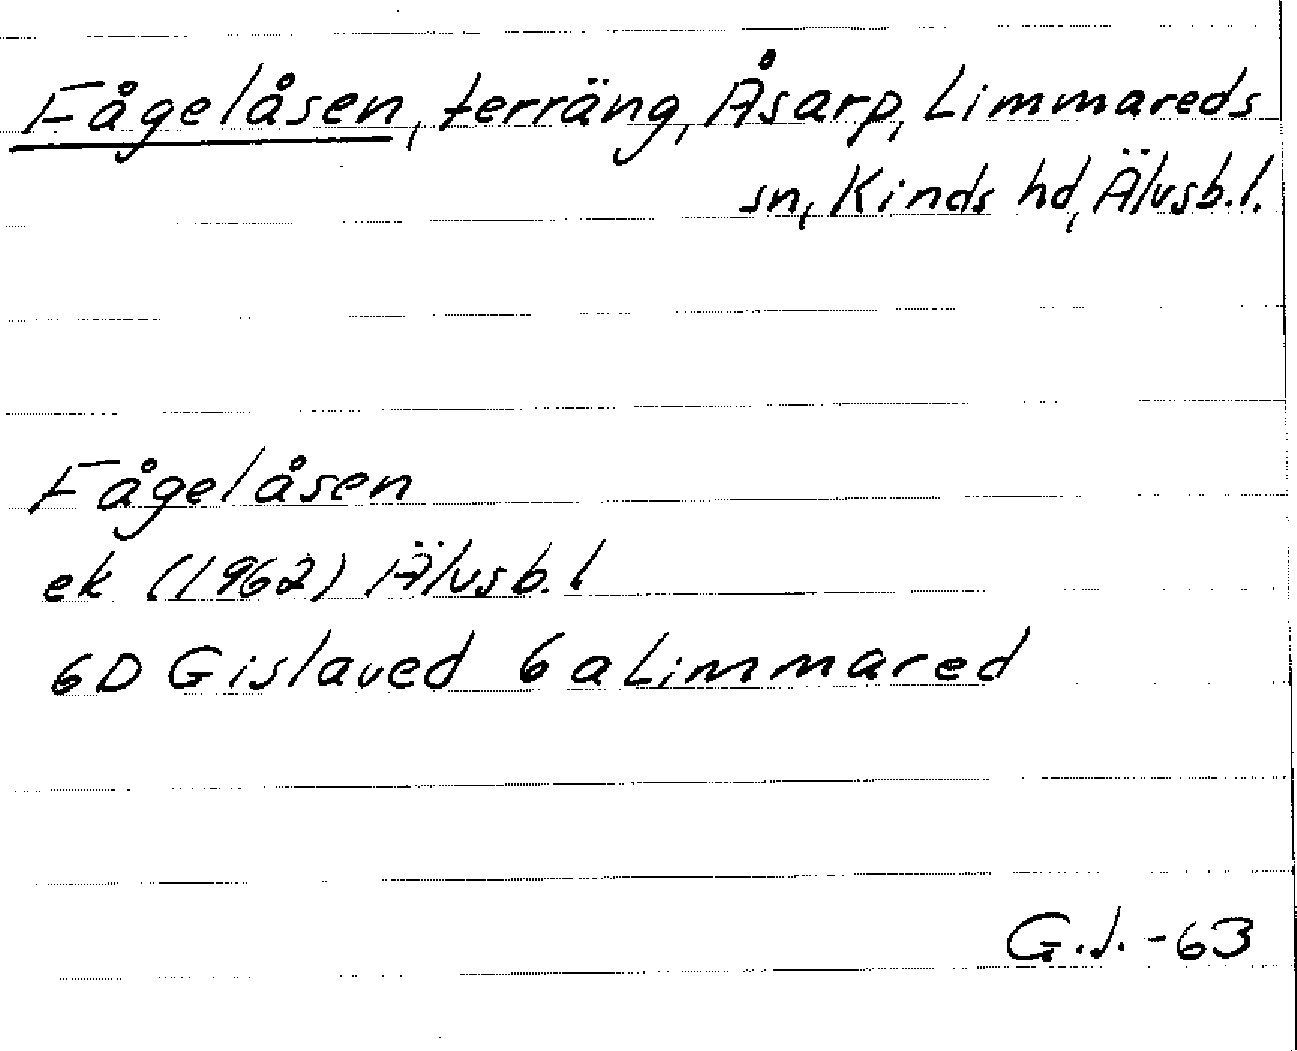 Fågelåsen, terräng, Åsarp, Limmareds
sn, Kinds hd, Älvsb.l.
Fågelåsen
ek (1962) Älvsb.l
6D Gislaved 6a Limmared
G.J.-63